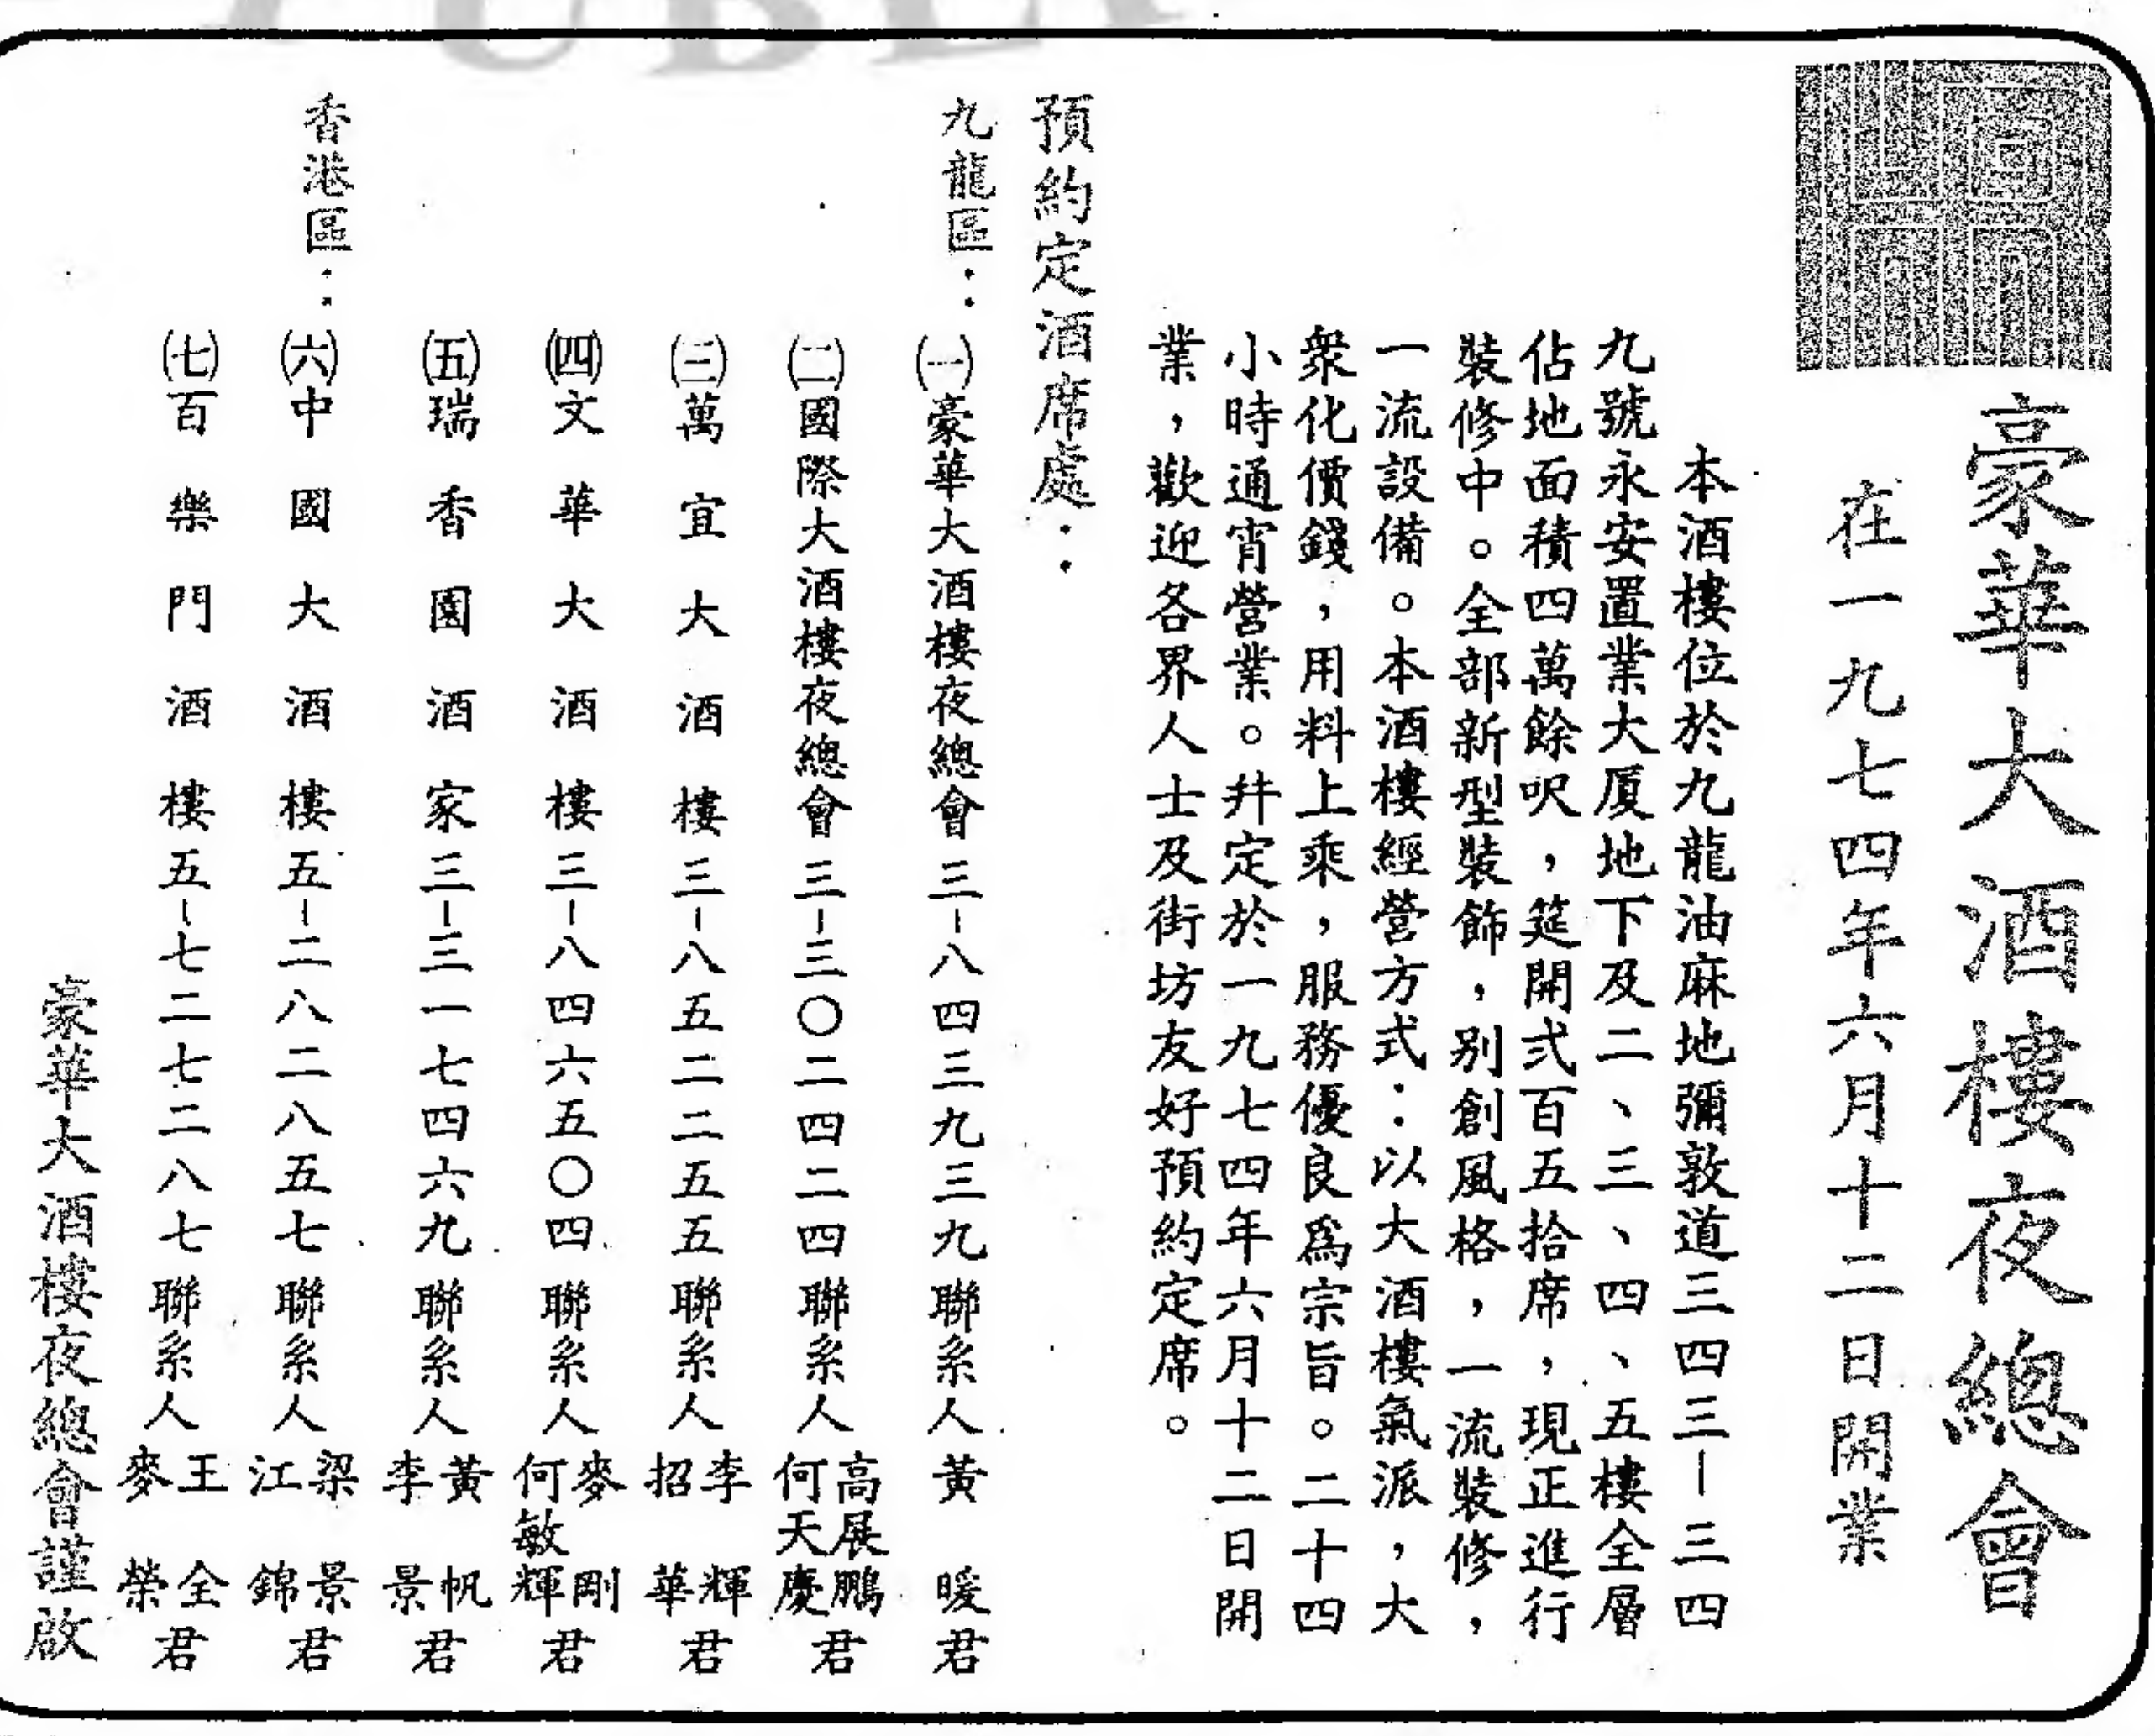 豪華大酒樓夜總會
在一九七四年六月十二日開業
本酒樓位於九龍油麻地彌敦道三四三－三四
九號永安置業大厦地下及二、三、四、五樓全層
佔地面積四萬餘呎，筵開弍百五拾席，現正進行
裝修中。全部新型裝飾，别創風格，一流裝修，
一流設備。本酒樓經營方式：以大酒樓氣派，大
衆化價錢，用料上乘，服務優良爲宗旨。二十四
小時通宵營業。幷定於一九七四年六月十二日開
業，歡迎各界人士及街坊友好預約定席。
預約定酒席處：
九龍區：㈠豪華大酒樓夜總會三－八四三九三九聯系人黃暖君
㈡國際大酒樓夜總會三－三〇二四二四聯系人高展鵬何天慶君
㈢萬宜大酒樓三－八五二二五五聯系人李輝招華君
㈣文華大酒樓三－八四六五〇四聯系人麥剛何敏輝君
㈤瑞香園酒家三－三一七四六九聯系人黃帆李景君
香港區：㈥中國大酒樓五－二八二八五七聯系人梁景江錦君
㈦百樂門酒樓五－七二七二八七聯系人王全麥榮君
豪華大酒樓夜總會謹啟